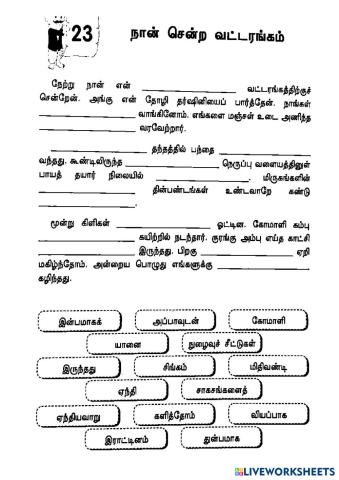 23 நான் சென்ற வட்டரங்கம்
நேற்று நான் என் ____________ வட்டரங்கத்திற்குச்
சென்றேன். அங்கு என் தோழி தர்ஷினியைப் பார்த்தேன். நாங்கள்
____________ வாங்கினோம். எங்களை மஞ்சள் உடை அணிந்த
____________ வரவேற்றார்.
____________ தந்தத்தில் பந்தை ____________
வந்தது. கூண்டிலிருந்த ____________ நெருப்பு வளையத்தினுள்
பாயத் தயார் நிலையில் ____________. மிருகங்களின்
____________ தின்பண்டங்கள் உண்டவாறே கண்டு
____________.
மூன்று கிளிகள் ____________ ஓட்டின. கோமாளி கம்பு
____________ கயிற்றில் நடந்தார். குரங்கு அம்பு எய்த காட்சி
____________ இருந்தது. பிறகு ____________ ஏறி
மகிழ்ந்தோம். அன்றைய பொழுது எங்களுக்கு ____________
கழிந்தது.
இன்பமாகக் அப்பாவுடன் கோமாளி
யானை நுழைவுச் சீட்டுகள்
இருந்தது சிங்கம் மிதிவண்டி
ஏந்தி சாகசங்களைத்
ஏந்தியவாறு களித்தோம் வியப்பாக
இராட்டினம் துன்பமாக
LIVEWORKSHEETS